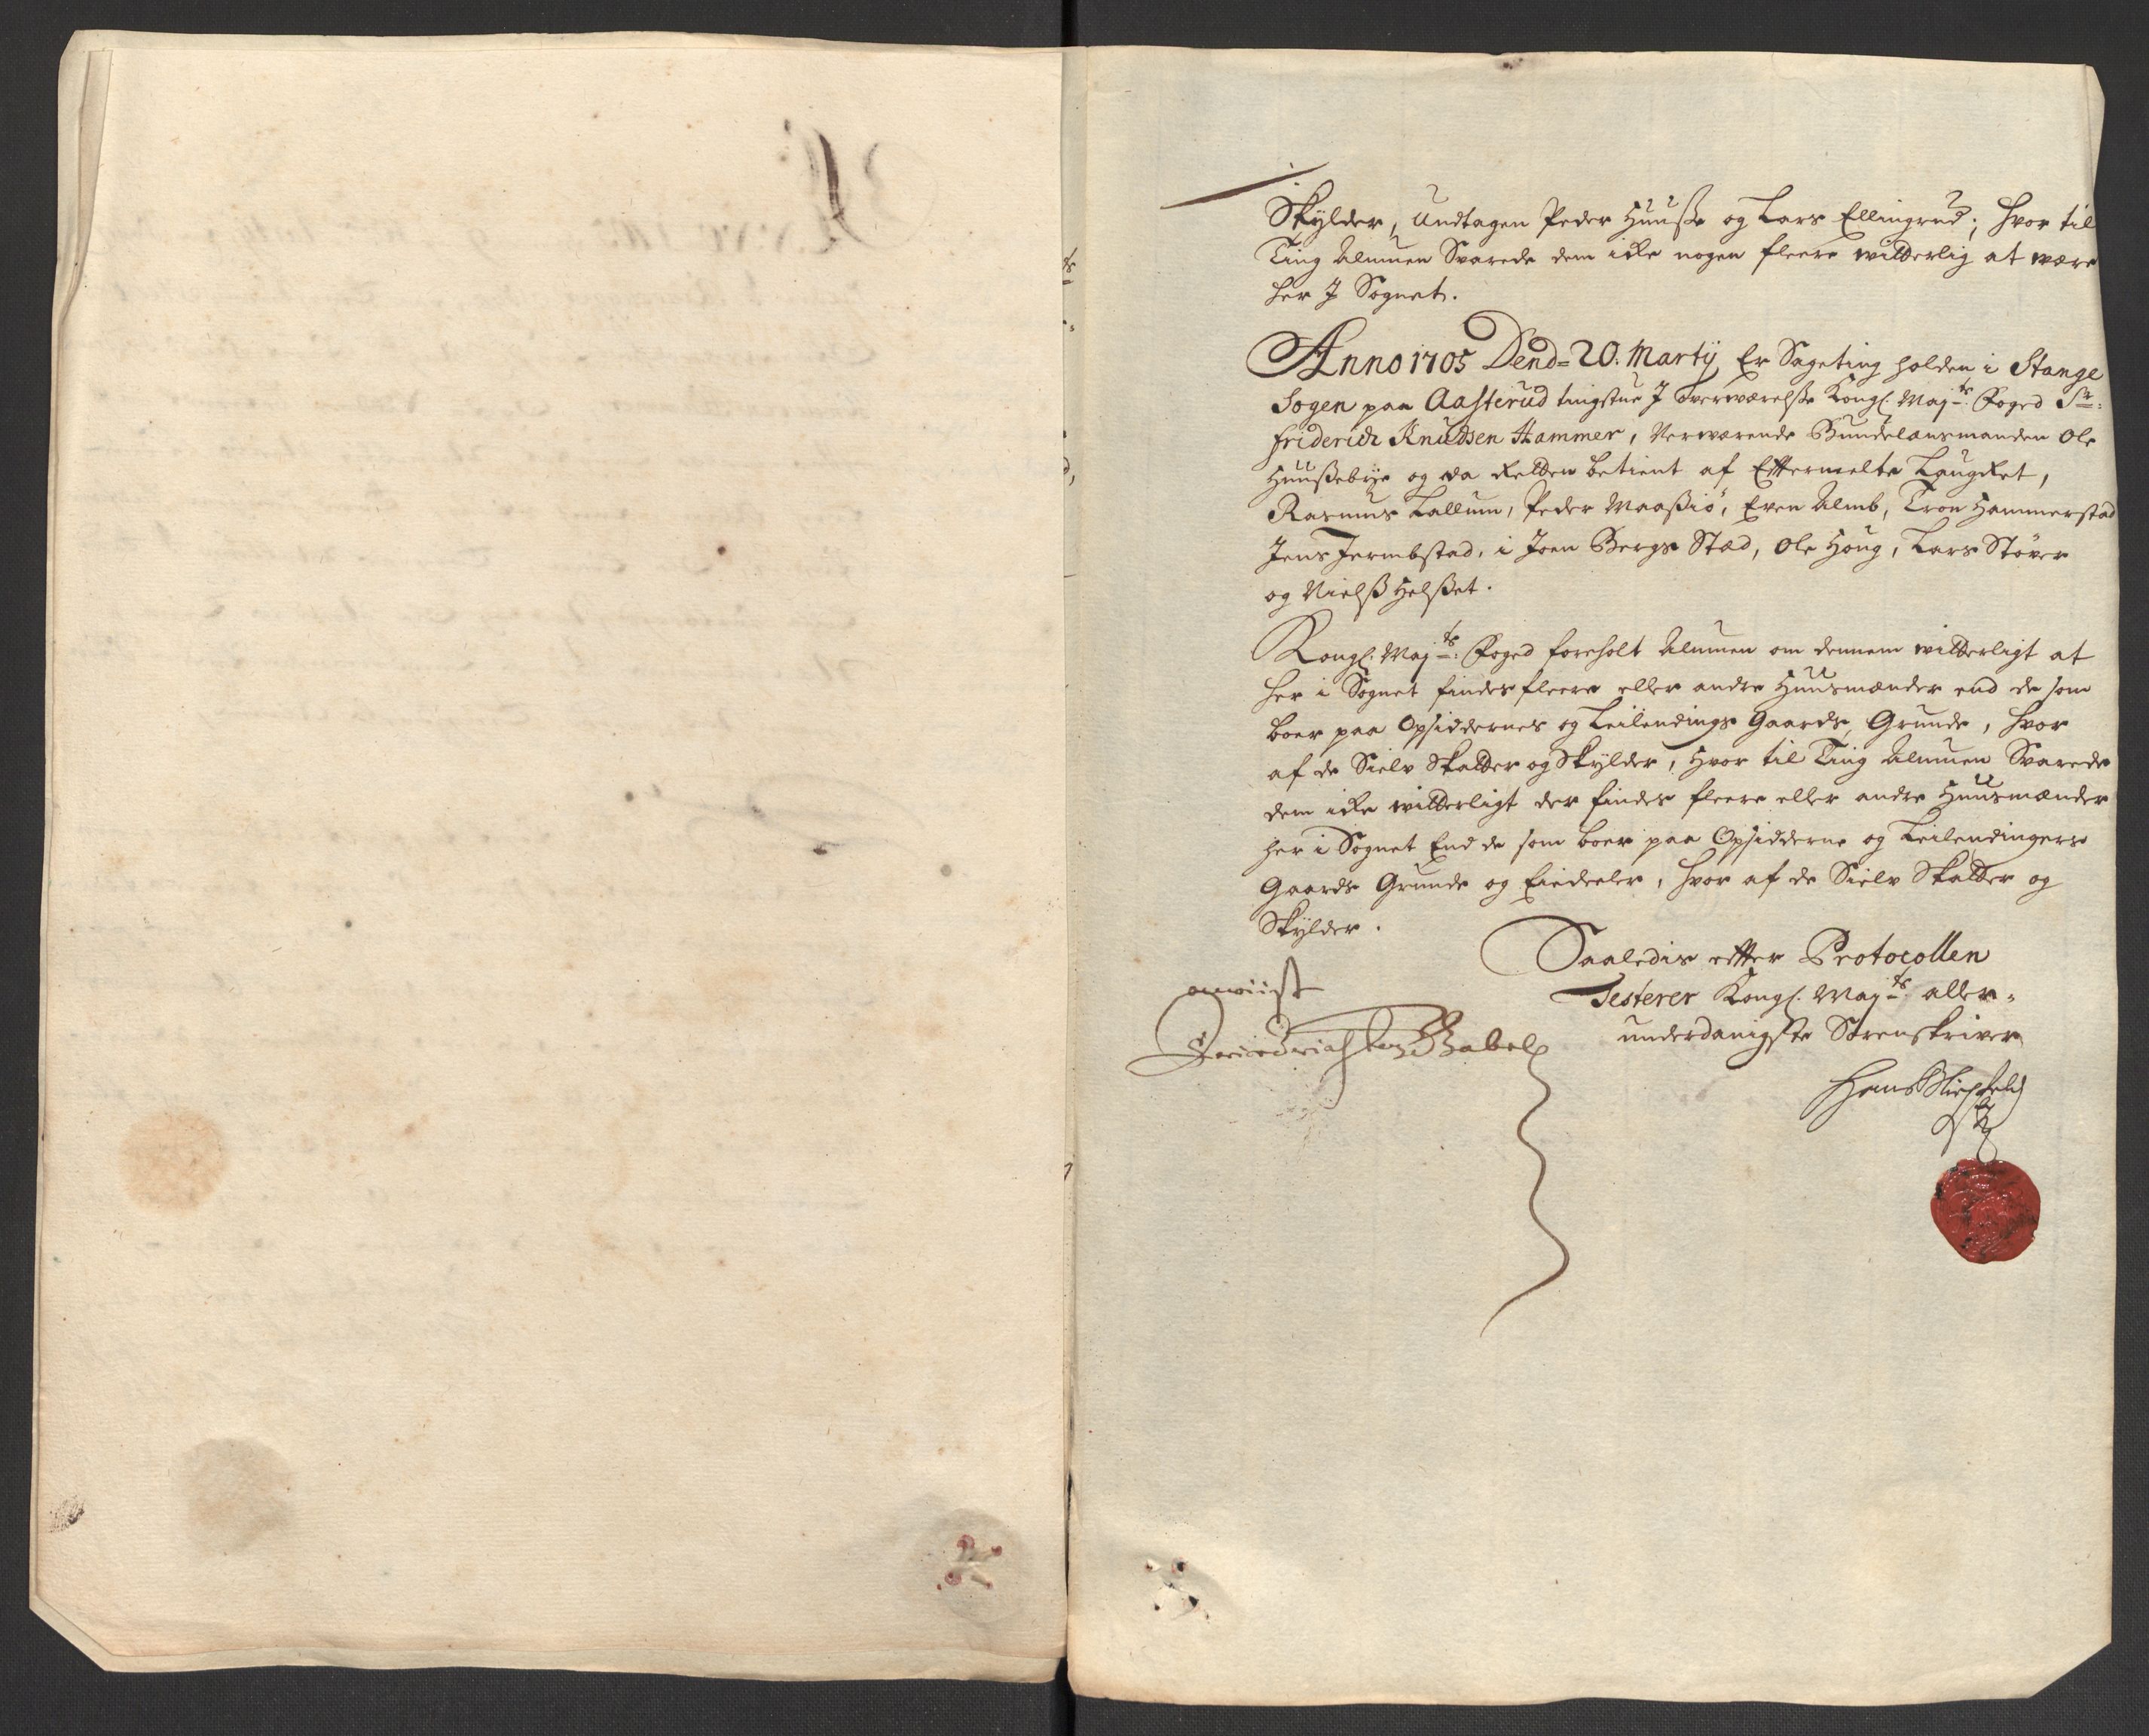 Skylder, Undtagen Peder Huusse og Lars Ellingrud; hvor til
Ting Almuen Svarede dem icke nogen fleere witterlig at være
her J Sognet.
Anno 1705 Dend= 20. Martij Er Sageting holden i Stange
Sogen paa Aasterud tingstue J Overværelsse Kongl. Maj:ts Foged Sr:
Friderich Knudsen Hammer, Nerværende Bundelænsmanden Ole
Huussebye og da Retten betient af Effermelte Laugret,
Rasmus Lallum, Peder Maassiø, Even Almb, Tron Hammerstad
Jens Jermbstad, i Joen Bergs Stæd, Ole Houg, Lars Støver
og Nielss Helsset.
Kongl. Maj:ts Foged foreholt Almuen om dennem witterligt at
her i Sognet findes fleere eller andre Huusmænder end de som
boer paa Opsiddernes og Leilendings Gaards Grunde, hvor
af de Sielv Skatter og Skylder, Hvor til Ting Almuen Svarede
dem icke witterligt der findes fleere eller andre Huusmænder
her i Sognet End de som boer paa Opsidderne og Leilendingers
Gaards Grunde og Eiedeeler, hvor af de Sielv Skatter og
Skylder.
Saaledis effter Protocollen
Testerer Kongl. Maj:ts aller-
underdanigste Sorenskriver
anviist